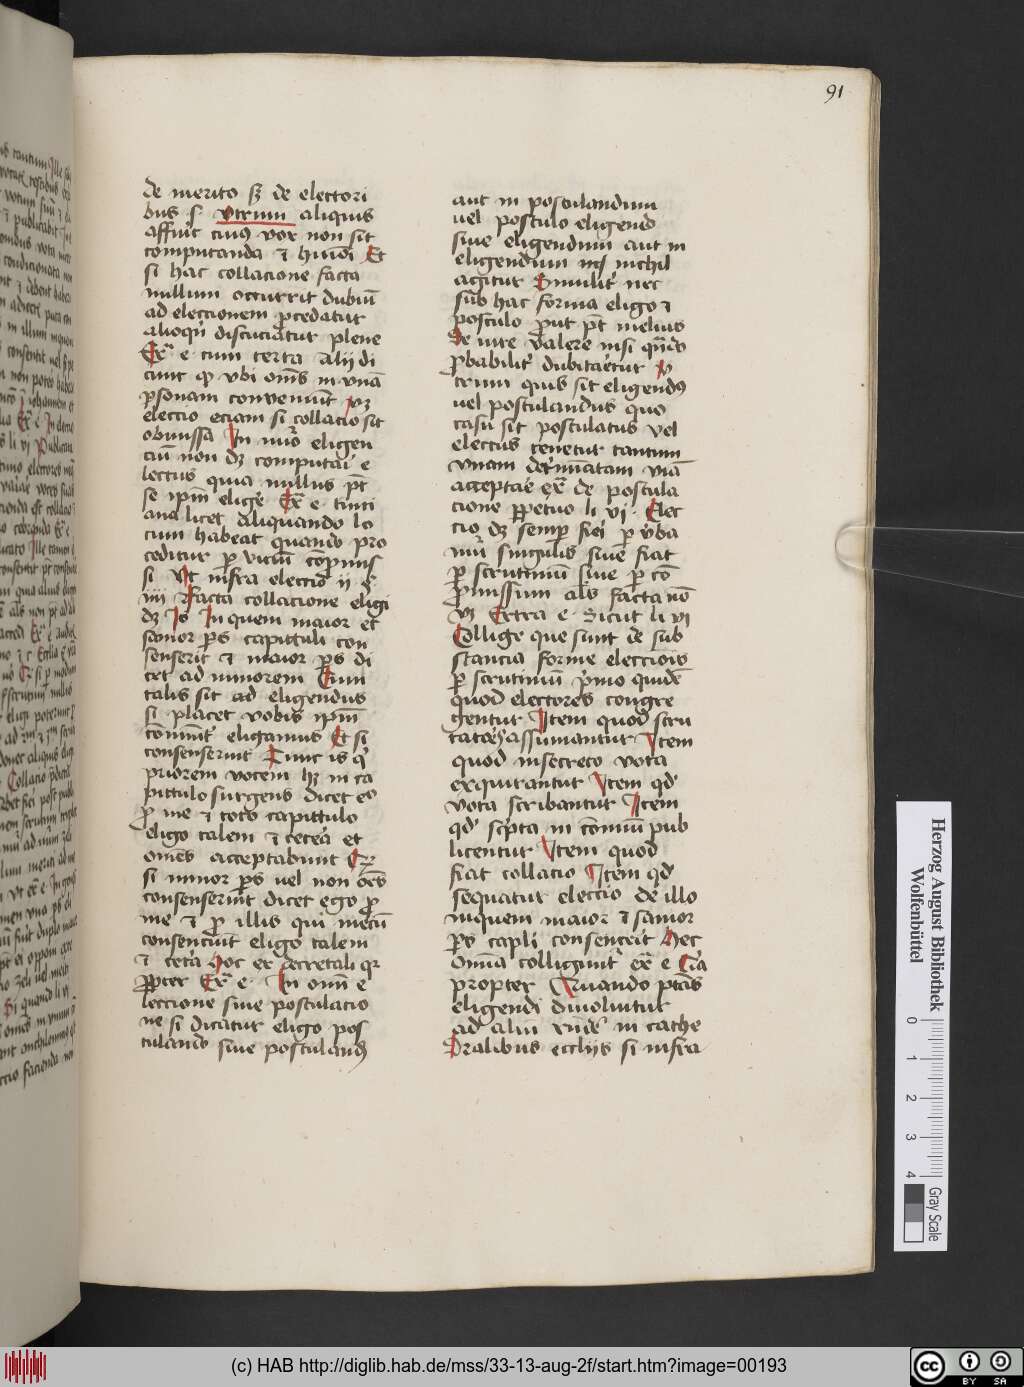 91
de merito sꝫ de electori
bus s. vtrum aliquis
affuit cuius vox non sit
computanda ⁊ huiōi Et
si hac collacione facta
nullum occurrit dubiū
ad eleccionem ꝓcedatur
alioqū discuciatur plene
Exᵃ e cum terra Alij di
cunt ꝙ vbi om̄s in vnā
ꝑsonam conveniunt vꝫ
eleccio eciam si collacio sit
obmissa In nuō eligen
ciū non dꝫ computāi e
lectus quia nullus pt̄
se ipm̄ elige Exᵃ e cum
ana licet aliquando lo
cum habeat quando pro
ceditur ꝑ viciū
si vt infra eleccio ij e
iiij Facta collacione eligi
dꝫ In quem maior et
sanior ꝑs capittuli con
senserit ⁊ maior ꝑs di
cet ad minorem Cum
talis sit ad eligendus
si placet vobis ipm̄
eligamus Et si
consenserint Tunc is ꝗ
priorem vocem hꝫ in ca
pittulo surgens dicet eo
ꝓ me ⁊ toto capittulo
eligo talem ⁊ ceteā et
omes acceptabunt
si minor ꝑs vel non oēs
consenserint dicet ego ꝓ
me ⁊ ꝓ illis qui mecū
consenciūt eligo talem
⁊ cetā Hoc ex decretali
ꝓpter Exᵃ e In om̄i e
leccione siue postulacio
ne si dicatur eligo pos
tulando siue postulandū
aut in postulandum
vel postulo eligendo
siue eligendum aut in
eligendum nichil
agitur Simulit nec
sub hac forma eligo ⁊
postulo ꝓut pt̄ melius
de iure valere nisi
ꝓbabilit dubitaretur v
trum quis sit eligendꝰ
vel postulandus quo
casu sit postulatus vel
electus tenetur tantum
vnam detminatam viā
acceptare exᵃ de postula
cione ꝑpetuo li vi Elec
cio dꝫ semꝑ fiei ꝑ vba
singulis siue fiat
ꝑ scrutiniū siue ꝑ cō
ꝓmissum als facta nō
vꝫ Extra e Sicut li vi
Collige que sunt de sub
stancia forme eleccionis
ꝑ scrutiniū ꝑmo quidē
quod electores congre
gentur Item quod scru
tatoēs assumantur Item
quod insecreto vota
exquirantur Item qd
vota scribantur Item
qd scpta in cōmuni pub
licentur Item quod
fiat collacio Item qd
sequatur eleccio de illo
inquem maior ⁊ sanior
ꝑs capli consentit Hec
omnia colligunt exᵃ e Cᵃia
propter Quando ptās
eligendi diuoluitur
ad aliū in cathe
dralibus ecclijs si infra
Herzog August Bibliothek
Wolfenbüttel
0 1 2 3 4
Gray Scale
(c) HAB http://diglib.hab.de/mss/33-13-aug-2f/start.htm?image=00193
cc BY SA